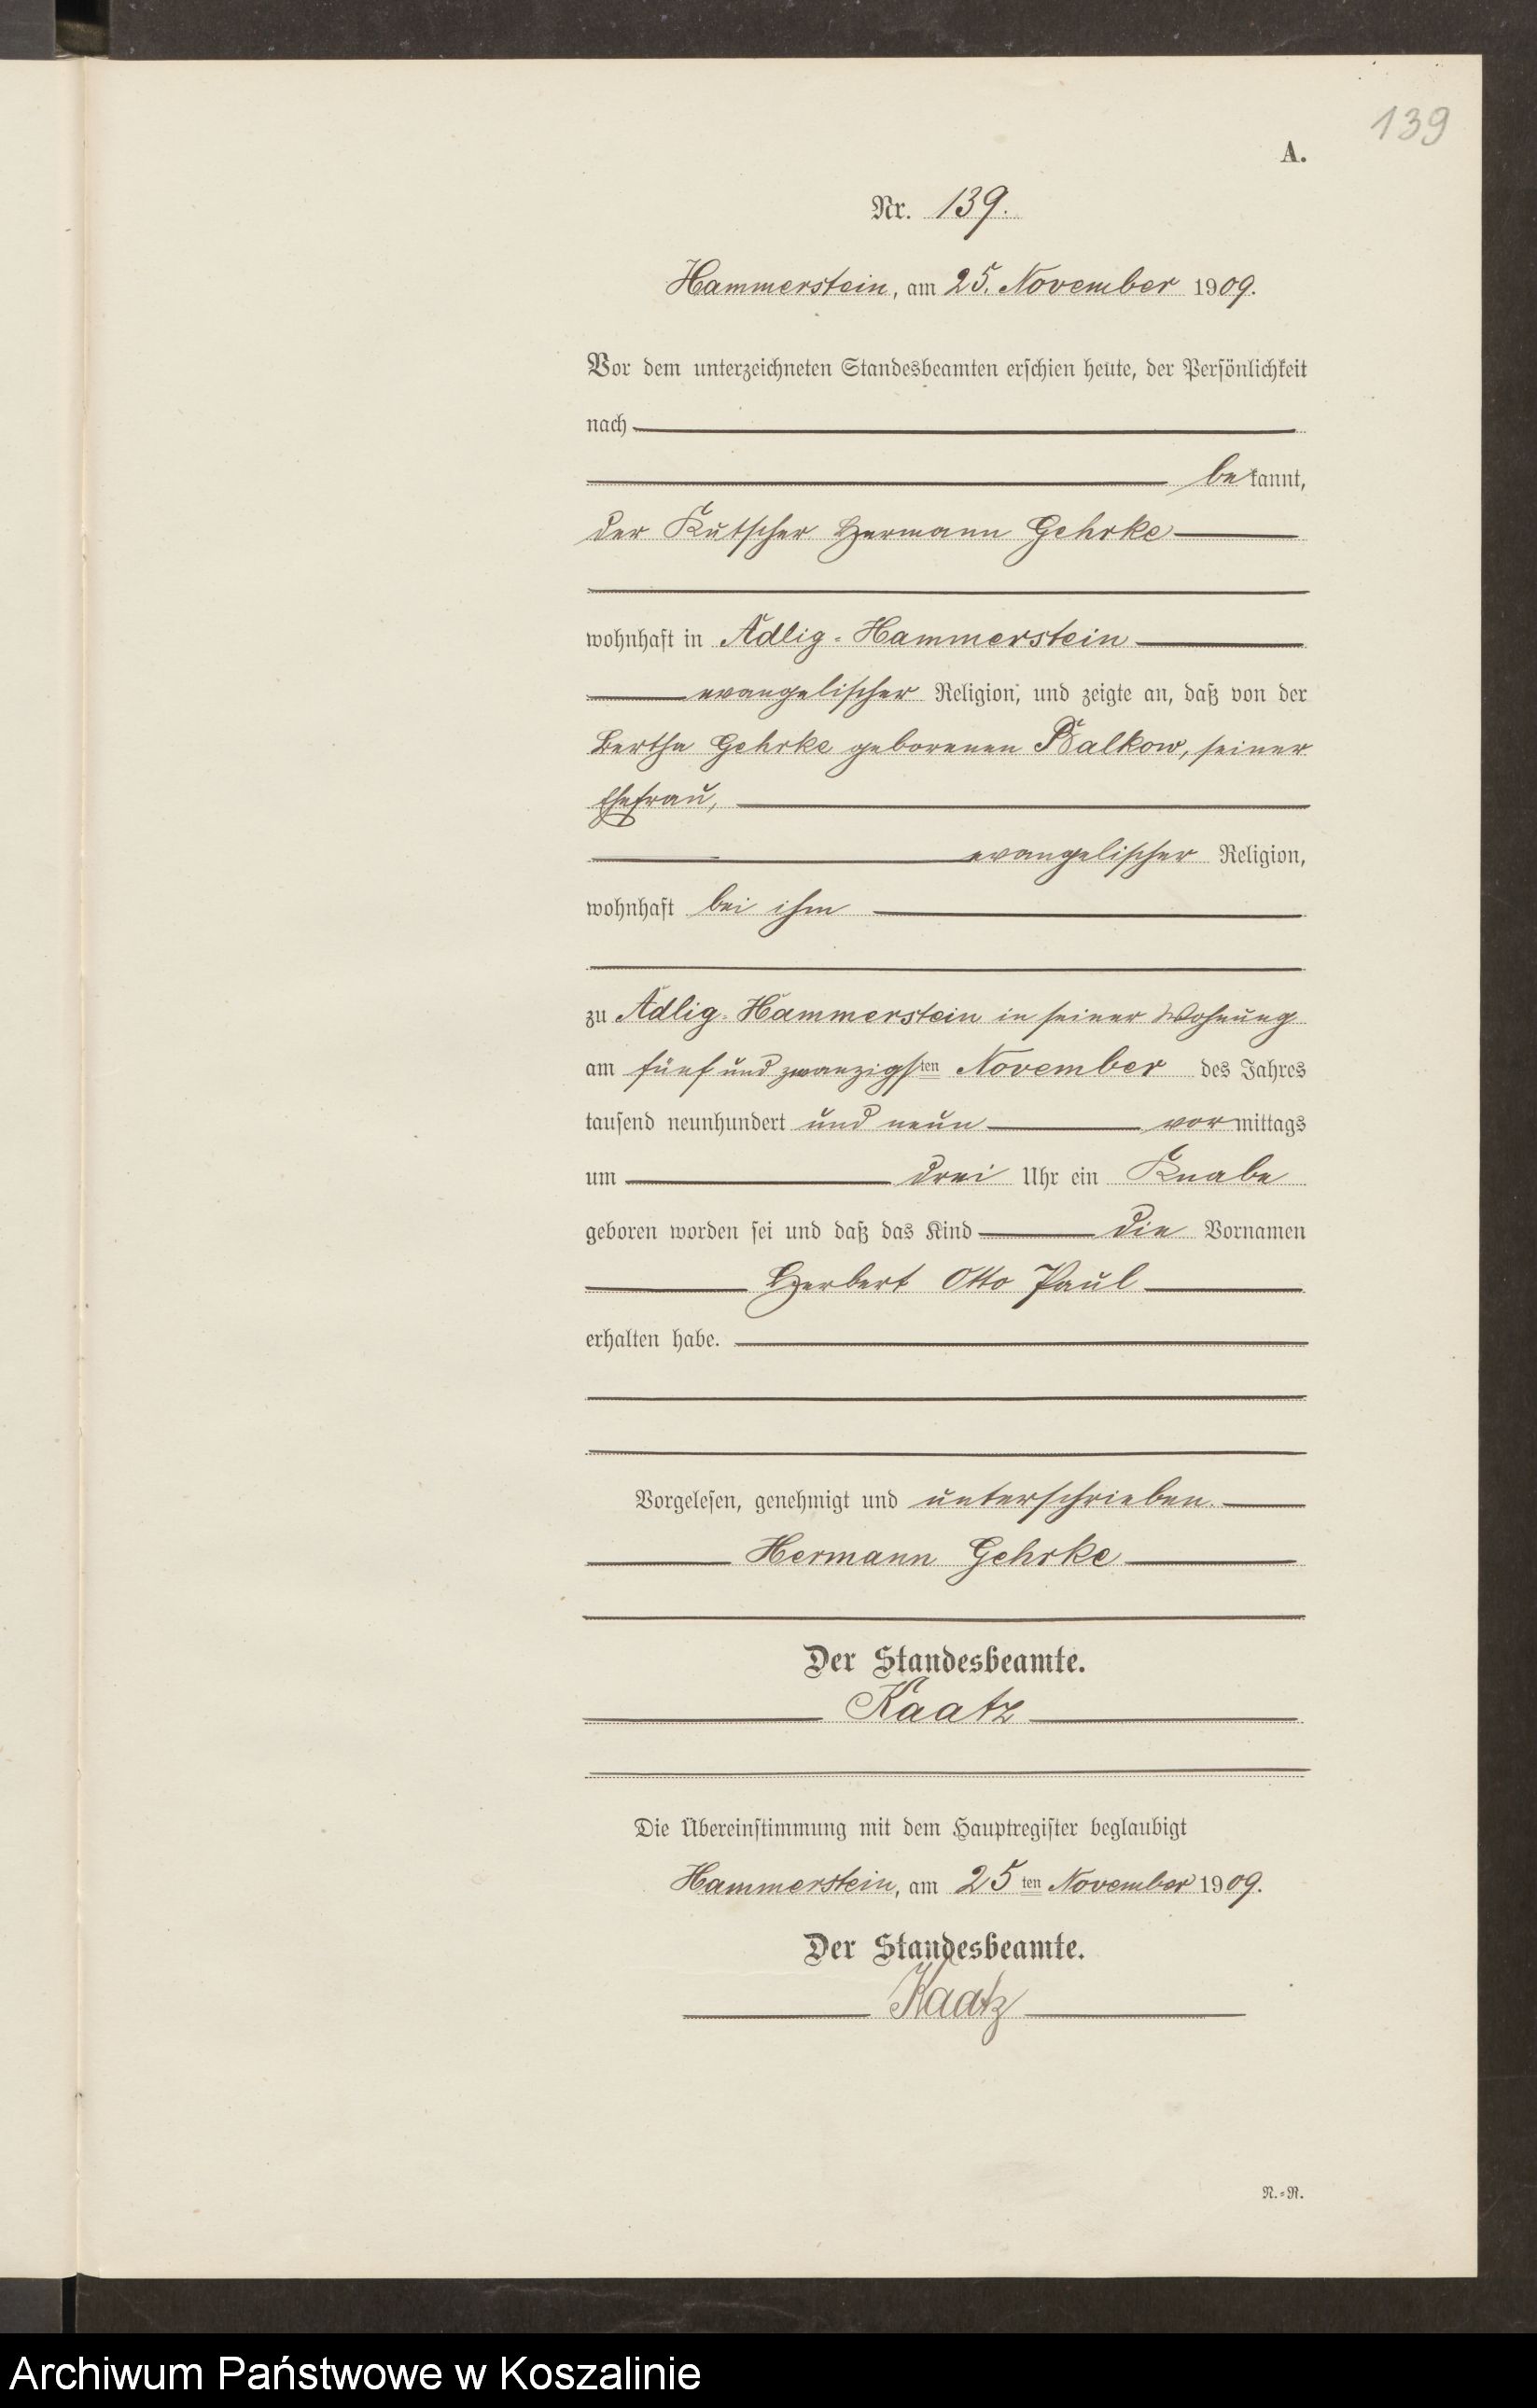 139
A.
Nr. 139.
Hammerstein, am 25. November 1909.
Vor dem unterzeichneten Standesbeamten erschien heute, der Persönlichkeit
nach
bekannt,
der Kutscher Hermann Gehrke
wohnhaft in Adlig-Hammerstein
evangelischer Religion, und zeigte an, daß von der
Bertha Gehrke geborenen Balkow, seiner
Ehefrau,
evangelischer Religion,
wohnhaft bei ihm
zu Adlig-Hammerstein in seiner Wohnung
am fünf und zwanzigsten November des Jahres
tausend neunhundert und neun vormittags
um drei Uhr ein Knabe
geboren worden sei und daß das Kind die Vornamen
Herbert Otto Paul
erhalten habe.
Vorgelesen, genehmigt und unterschrieben.
Hermann Gehrke
Der Standesbeamte.
Kaatz
Die Übereinstimmung mit dem Hauptregister beglaubigt
Hammerstein, am 25ten November 1909.
Der Standesbeamte.
Kaatz
N.=R.
Archiwum Państwowe w Koszalinie